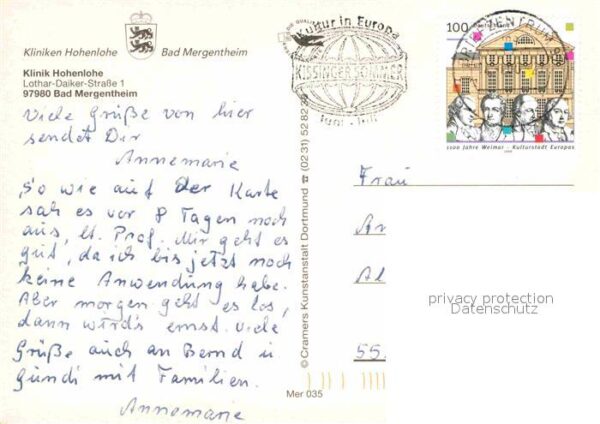 Kliniken Hohenlohe Bad Mergentheim
Klinik Hohenlohe
Lothar-Daiker-Straße 1
97980 Bad Mergentheim
Viele Grüße von hier
sendet Dir
Annemarie
So wie auf der Karte
sah es vor 8 Tagen noch
aus, lt. Prof. Mir geht es
gut, da ich bis jetzt noch
keine Anwendung habe.
Aber morgen geht es los,
dann wird's ernst. Viele
Grüße auch an Bernd u
Gundi mit Familien.
Annemarie
© Cramers Kunstanstalt Dortmund ☎ (02 31) 52 82 39
Mer 035
Kultur in Europa
KISSINGER SOMMER
Juni - Juli
BRIEFZENTRUM
100
1100 Jahre Weimar - Kulturstadt Europas
Frau
An
Al
55
privacy protection
Datenschutz